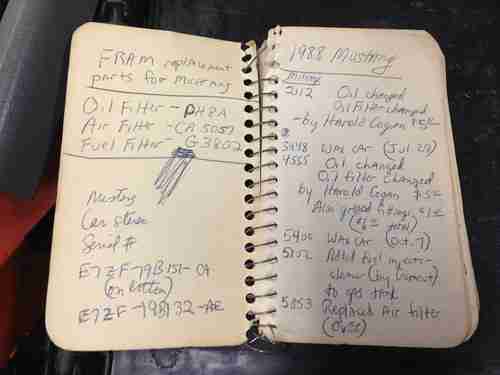 FRAM replacement
parts for Mustang
Oil Filter - PH8A
Air Filter - CA5057
Fuel Filter - G3802
Mustang
Car stereo
Serial #
E7ZF-19B151-CA
(on bottom)
E7ZF-19B132-AE
1988 Mustang
Mileage
2112 Oil changed
Oil Filter changed
- by Harold Cogan
Wax car (Jul 27)
4555 Oil changed
Oil filter changed
by Harold Cogan
Also greased fittings
total)
Wax car (Oct. 7)
Added fuel injector
cleaner (by
to gas tank
Replaced Air filter